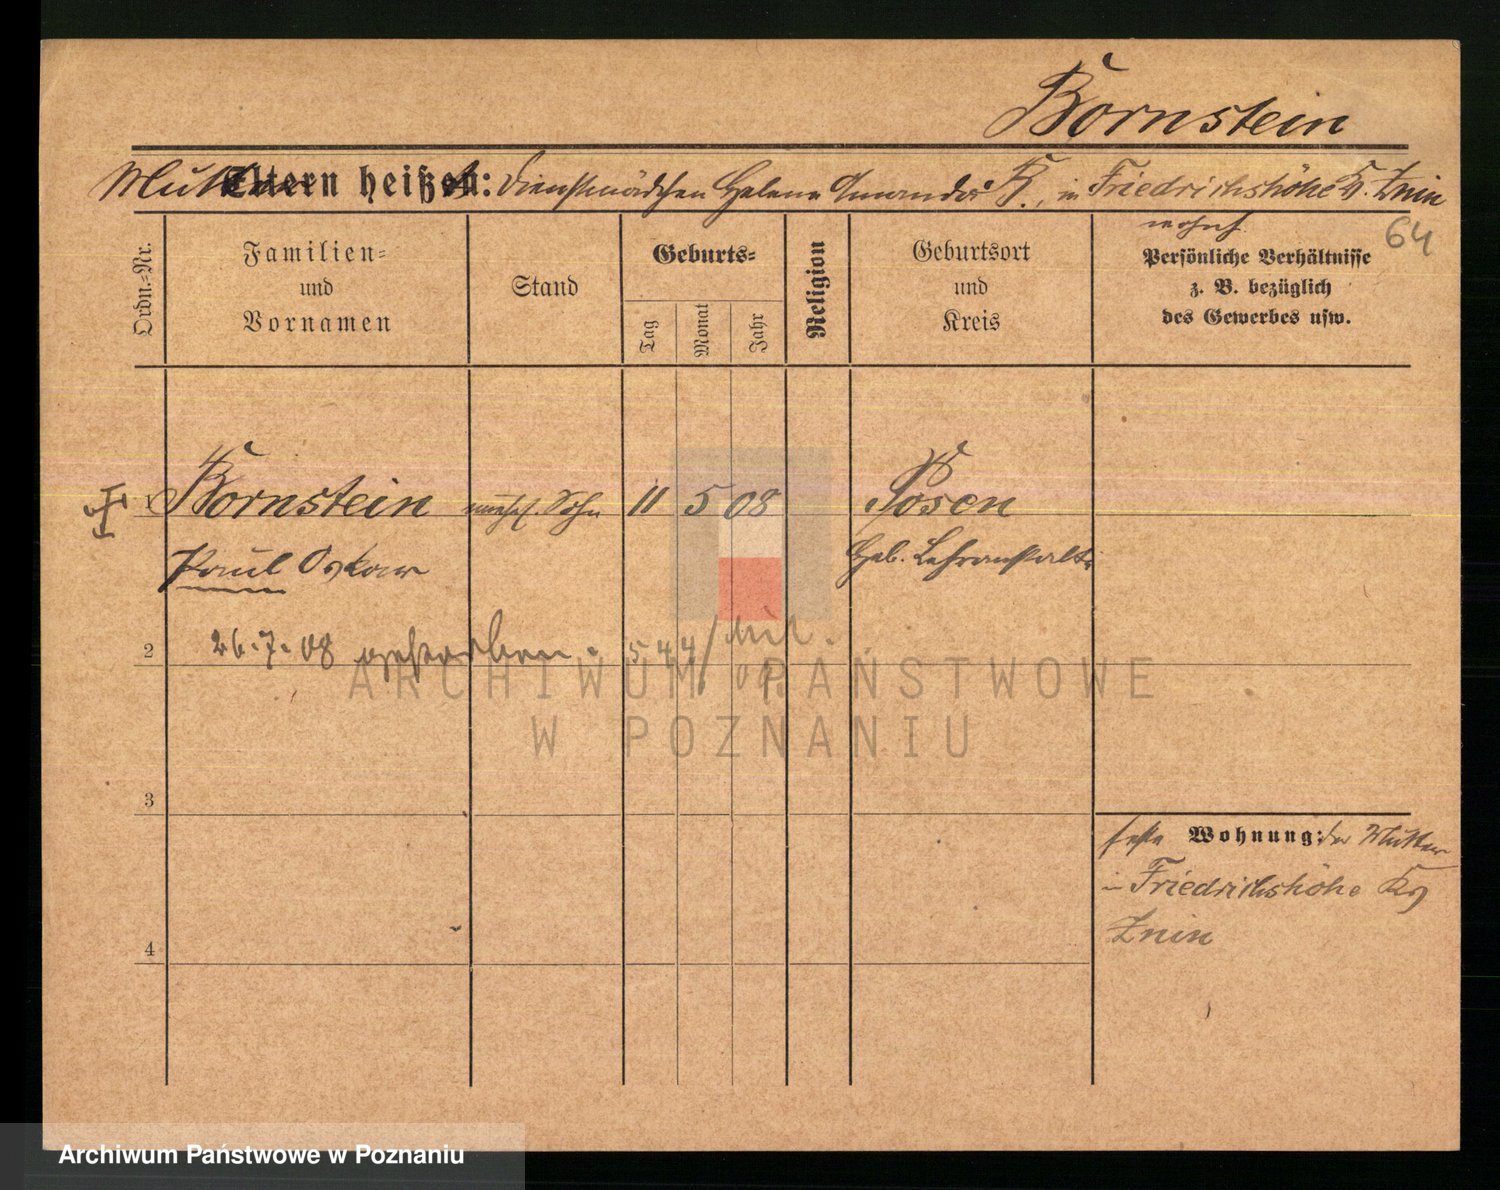 Bornstein
Mutter Eltern heißen: Dienstmädchen Helene Amanda B., in Friedrichshöhe Kr. Znin
wohnh.
64
Ordn.-Nr.
Familien-
und
Vornamen
Stand
Geburts-
Tag
Monat
Jahr
Religion
Geburtsort
und
Kreis
Persönliche Verhältnisse
z. B. bezüglich
des Gewerbes usw.
Bornstein unehel. Sohn 11 5 08 Posen
Paul Oskar Heb. Lehranstalt
2 26.7.08 gestorben. 544/
3
feste Wohnung: der Mutter
in Friedrichshöhe Krs
Znin
4
ARCHIWUM PAŃSTWOWE
W POZNANIU
Archiwum Państwowe w Poznaniu